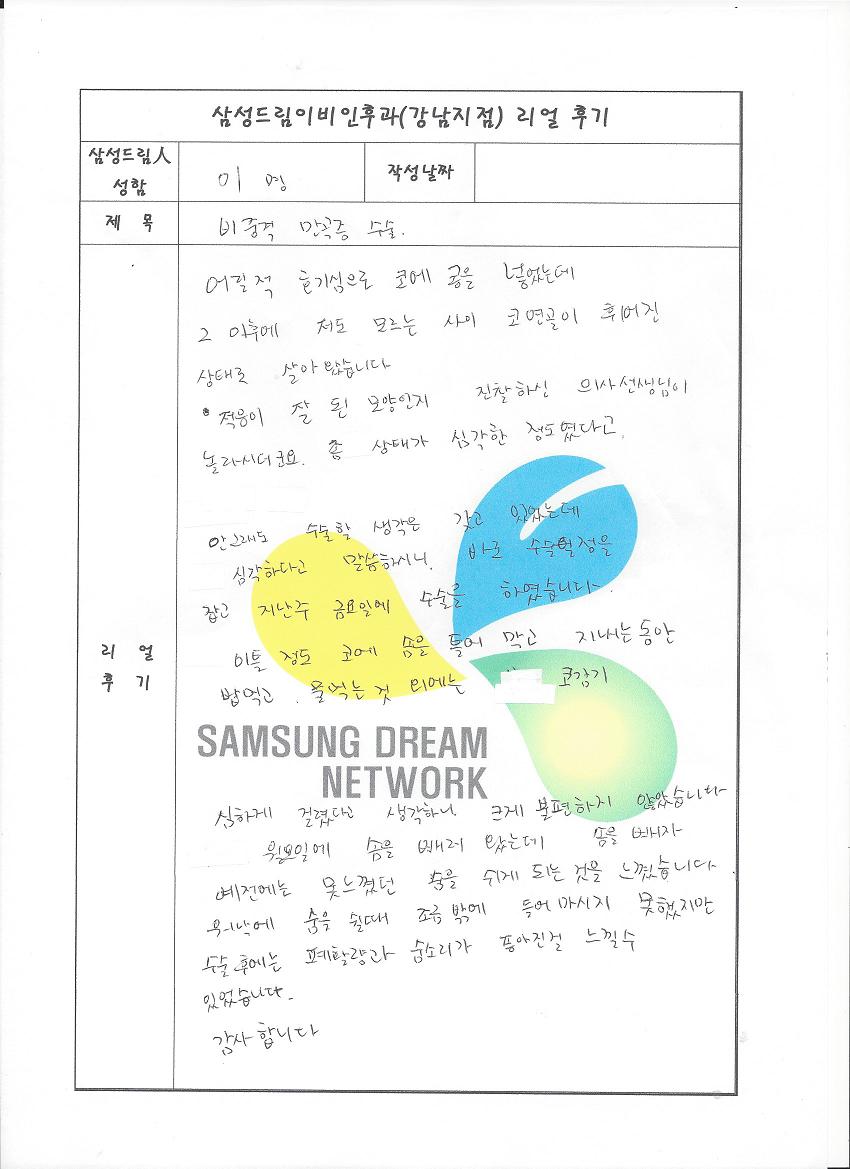 삼성드림이비인후과(강남지점) 리얼 후기
삼성드림人
성함
이 영
작성날짜
제 목
비중격 만곡증 수술.
어릴적 호기심으로 코에 콩을 넣었는데
그 이후에 저도 모르는 사이 코연골이 휘어진
상태로 살아 왔습니다
적응이 잘 된 모양인지 진찰하신 의사선생님이
놀라시더군요. 좀 상태가 심각한 정도였다고.
안그래도 수술할 생각은 갖고 있었는데
심각하다고 말씀하시니. 바로 수술일정을
잡고 지난주 금요일에 수술를 하였습니다.
이틀 정도 코에 솜을 틀어 막고 지내는동안
밥먹고. 물먹는 것 외에는 코감기
리 얼
후 기
SAMSUNG DREAM
NETWORK
심하게 걸렸다고 생각하니 크게 불편하지 않았습니다
월요일에 솜을 빼러 왔는데 솜을 빼자
예전에는 못느꼈던 숨을 쉬게 되는 것을 느꼈습니다
숨을 쉴때 조금 밖에 들어 마시지 못했지만
수술후에는 폐활량과 숨소리가 좋아진걸 느낄수
있었습니다.
감사합니다